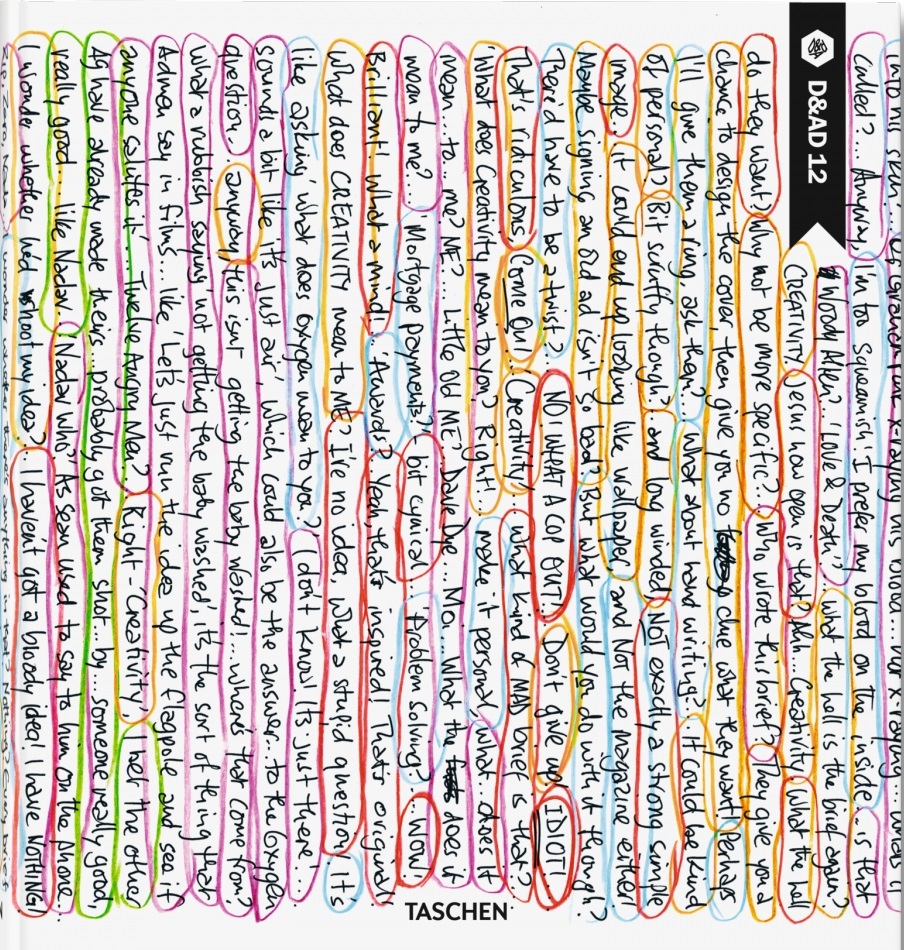 D&AD 12
called?... Anyway, I'm too squeamish! I prefer my blood on the inside... is that
Woody Allen?.. 'Love & Death'? what the hell is the brief again?
CREATIVITY. Jesus how open is that? Ahh... Creativity. What the hell
do they want? Why not be more specific?.. Who wrote this brief? They give you a
chance to design the cover, then give you no clue what they want! Perhaps
I'll give them a ring, ask them? What about hand writing?.. It could be kind
of personal? Bit scruffy though? and long winded, NOT exactly a strong simple
image. It could end up looking like wallpaper, and Not the magazine either!
Maybe signing an old ad isn't so bad? But what would you do with it though?
There'd have to be a twist? NO! WHAT A COP OUT! Don't give up! IDIOT!
That's ridiculous! Come On! Creativity... what kind of MAD brief is that?
'What does Creativity mean to you?' Right!... make it personal, what... does it
mean... to... me? ME?... Little old ME? Dave Dye... Mo... What the does it
mean to me?... Mortgage payments? bit cynical. 'Problem solving'? ...WOW!
Brilliant! What a mind! 'Awards'?.. Yeah, that's inspired! That's original!
What does CREATIVITY mean to ME? I've no idea, What a stupid question! It's
like asking 'what does oxygen mean to you?' I don't know! It's just there!...
sounds a bit like 'it's just air', which could also be the answer... to the Oxygen
question. anyway, this isn't getting the baby washed!... where's that come from?
What a rubbish saying 'not getting the baby washed', it's the sort of thing that
Admen say in films... like 'Let's just run the idea up the flagpole and see if
anyone salutes it'... Twelve Angry Men? Right - 'Creativity'. I bet the other
Ag have already made theirs... probably got them shot by... someone really good,
really good.... like Nadav. Nadav who? As Sean used to say to him on the phone...
I wonder whether he'd shoot my idea? I haven't got a bloody idea! I have NOTHING!
TASCHEN